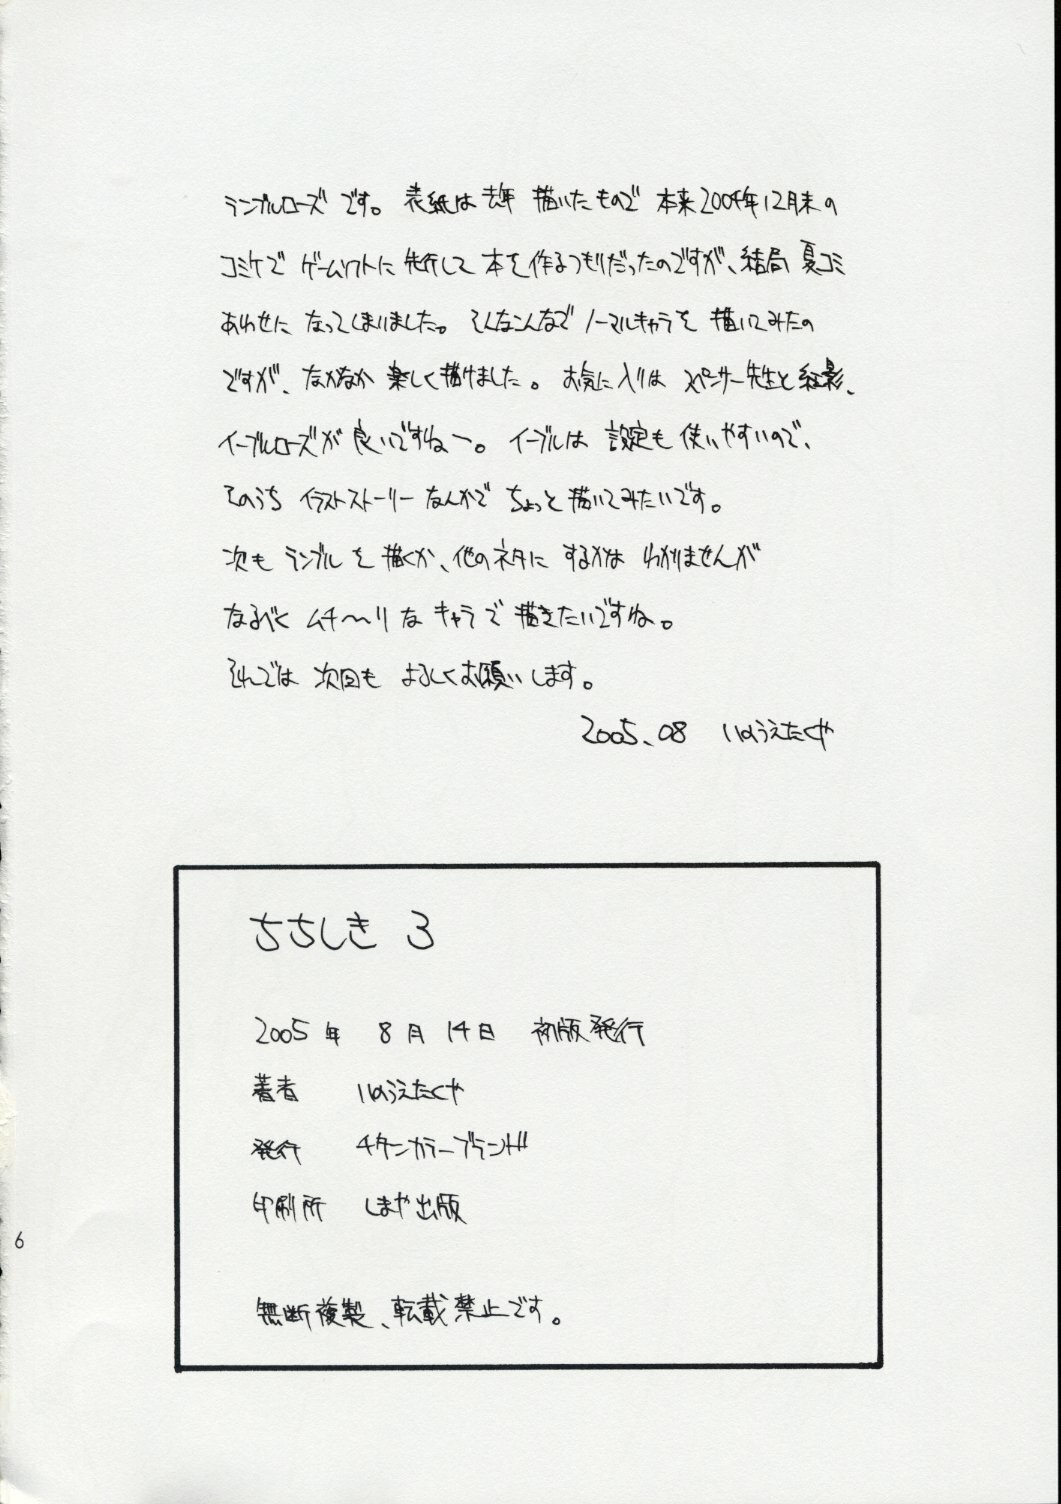 ランブルローズです。表紙は去年描いたもので本来2004年12月末の
コミケでゲームソフトに先行して本を作るつもりだったのですが、結局夏コミ
あわせになってしまいました。そんなこんなでノーマルキャラを描いてみたの
ですが、なかなか楽しく描けました。お気に入りはスペンサー先生と紅影、
イーブルローズが良いですねー。イーブルは設定も使いやすいので、
そのうちイラストストーリーなんかでちょっと描いてみたいです。
次もランブルを描くか、他のネタにするかはわかりませんが
なるべくムチ〜リなキャラで描きたいですね。
それでは次回もよろしくお願いします。
2005、08 いのうえたくや
ちちしき 3
2005年 8月 14日 初版発行
著者 いのうえたくや
発行 チタンカラーブランド
印刷所 しまや出版
6
無断複製、転載禁止です。